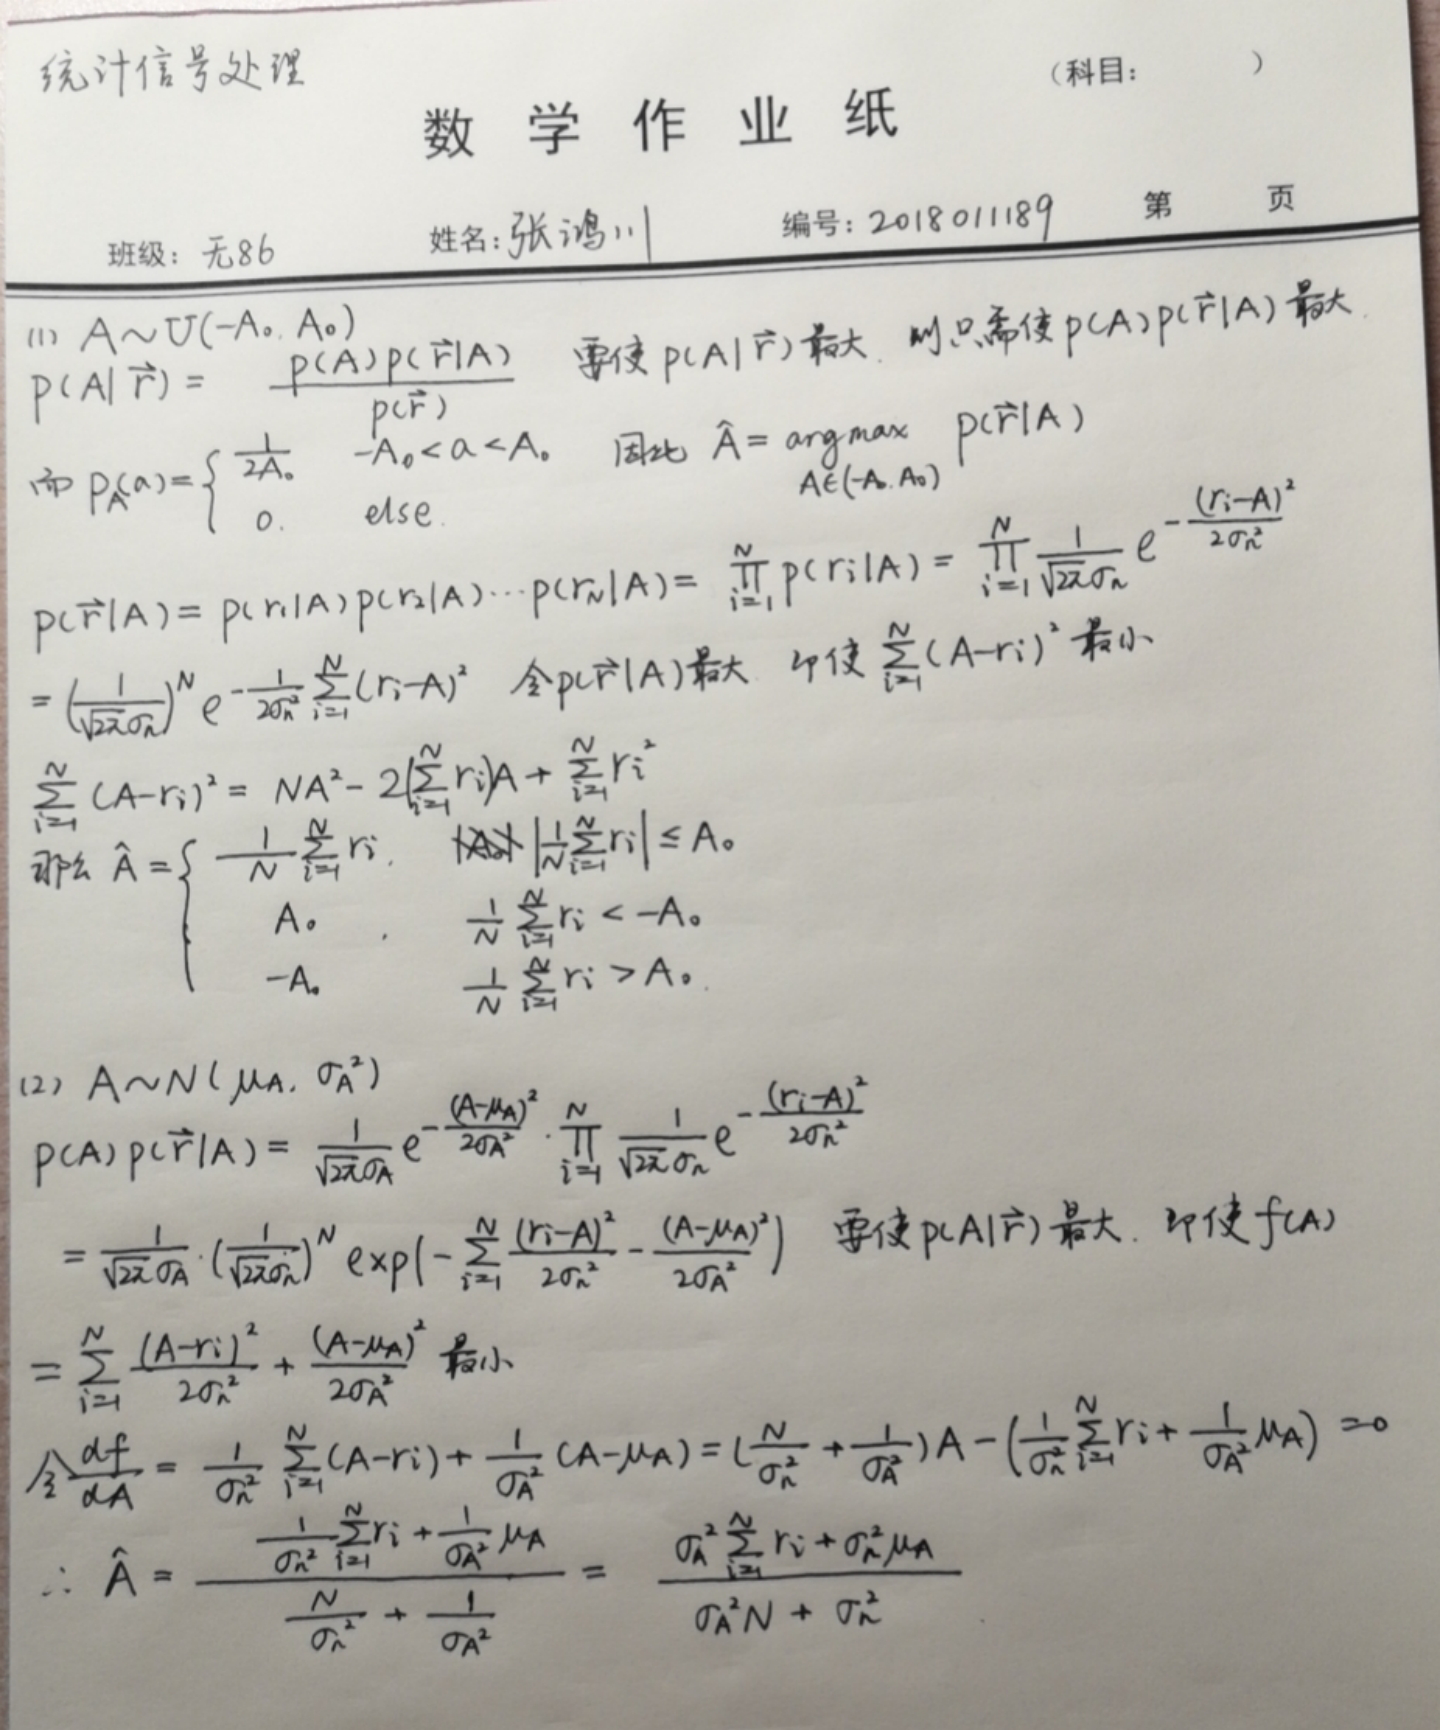 统计信号处理
(科目: )
数学作业纸
班级: 无86 姓名: 张鸿川 编号: 2018011189 第 页
(1) A~U(-A₀, A₀)
p(A|r⃗) = p(A)p(r⃗|A) / p(r⃗) 要使 p(A|r⃗) 最大, 则只需使 p(A)p(r⃗|A) 最大.
而 p_A(a) = { 1/(2A₀) -A₀<a<A₀ 因此 Â = argmax_{A∈(-A₀,A₀)} p(r⃗|A)
0. else.
p(r⃗|A) = p(r₁|A)p(r₂|A)⋯p(r_N|A) = ∏_{i=1}^N p(r_i|A) = ∏_{i=1}^N 1/(√(2π)σ_n) e^{-(r_i-A)²/(2σ_n²)}
= (1/(√(2π)σ_n))^N e^{-1/(2σ_n²) ∑_{i=1}^N (r_i-A)²} 令p(r⃗|A)最大 即使 ∑_{i=1}^N (A-r_i)² 最小
∑_{i=1}^N (A-r_i)² = NA² - 2(∑_{i=1}^N r_i)A + ∑_{i=1}^N r_i²
那么 Â = { 1/N ∑_{i=1}^N r_i, |1/N ∑_{i=1}^N r_i| ≤ A₀
A₀ , 1/N ∑_{i=1}^N r_i < -A₀
-A₀ 1/N ∑_{i=1}^N r_i > A₀.
(2) A~N(μ_A, σ_A²)
p(A)p(r⃗|A) = 1/(√(2π)σ_A) e^{-(A-μ_A)²/(2σ_A²)} · ∏_{i=1}^N 1/(√(2π)σ_n) e^{-(r_i-A)²/(2σ_n²)}
= 1/(√(2π)σ_A) · (1/(√(2π)σ_n))^N exp(-∑_{i=1}^N (r_i-A)²/(2σ_n²) - (A-μ_A)²/(2σ_A²)) 要使p(A|r⃗)最大, 即使f(A)
= ∑_{i=1}^N (A-r_i)²/(2σ_n²) + (A-μ_A)²/(2σ_A²) 最小
令 df/dA = 1/σ_n² ∑_{i=1}^N (A-r_i) + 1/σ_A² (A-μ_A) = (N/σ_n² + 1/σ_A²)A - (1/σ_n² ∑_{i=1}^N r_i + 1/σ_A² μ_A) = 0
∴ Â = (1/σ_n² ∑_{i=1}^N r_i + 1/σ_A² μ_A) / (N/σ_n² + 1/σ_A²) = (σ_A² ∑_{i=1}^N r_i + σ_n² μ_A) / (σ_A² N + σ_n²)